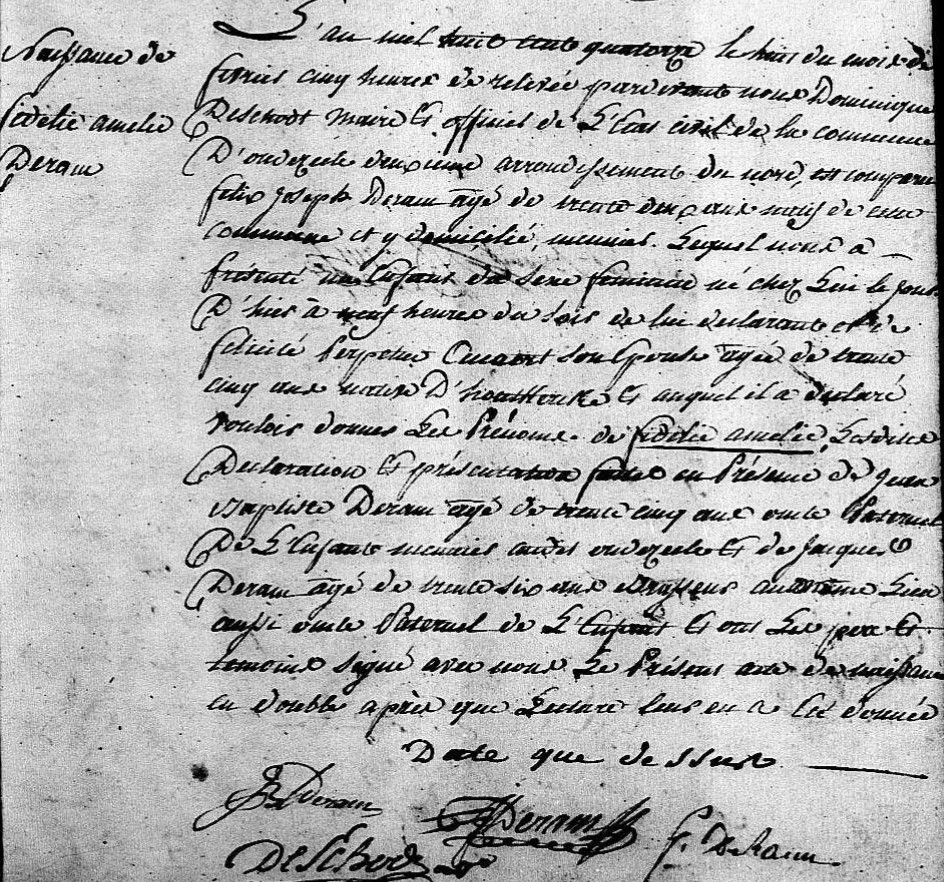 Naissance de
fidelie amelie
Deram
L'an mil huit cent quatorze le huit du mois de
fevrier cinq heures de relevée pardevant nous Dominique
Deschodt Maire et officier de L'Etat civil de la commune
D'oudezeele deuxieme arrondissement du nord, est comparu
felix joseph Deram agé de trente deux ans natif de cette
commune et y domicilié, meunier. Lequel nous a
présenté un Enfant du sexe feminin né chez Lui le jour
D'hier à neuf heures du soir de lui declarant et de
felicité Perpetue son Epouse agée de trente
cinq ans native D' et auquel il a declaré
vouloir donner Les Prénoms de fidelie amelie, Lesdites
Declaration et présentation faites en Présence de Jean
Baptiste Deram agé de trente cinq ans oncle Paternel
De L'Enfant meunier audit oudezeele et de Jacques
Deram agé de trente six ans Brasseur au même Lieu
aussi oncle Paternel de L'Enfant Et ont Les pere Et
temoins signé avec nous Le Présent acte de naissance
en double après que Lecture leur en a Eté donnée
Date que dessus
JB Deram
Deram
f. j. DeRam
DeSchodt